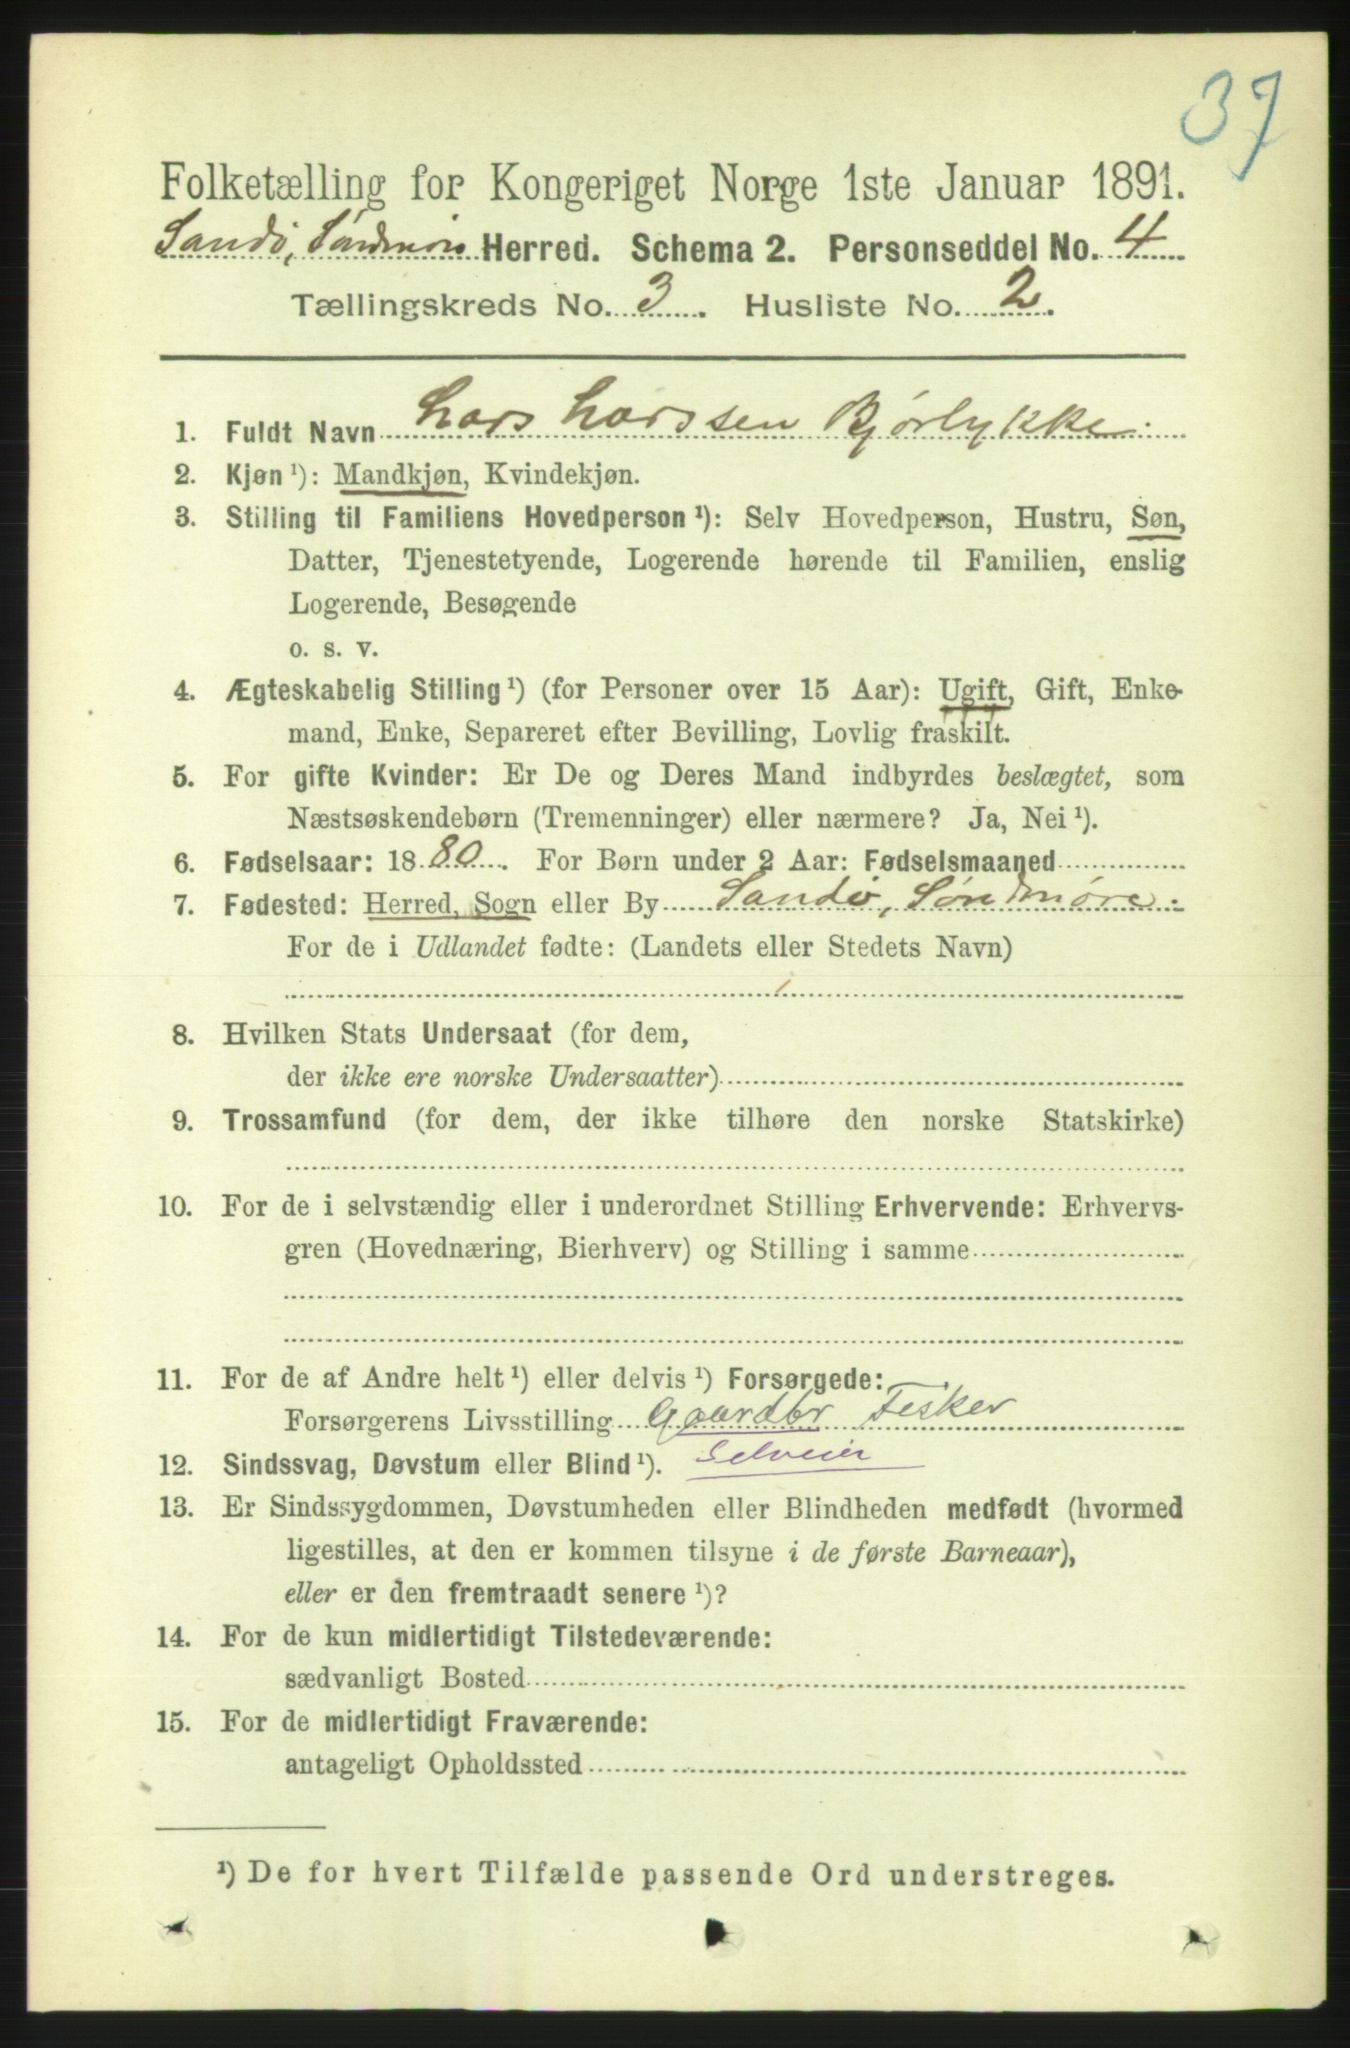 37
Folketælling for Kongeriget Norge 1ste Januar 1891.
Sandö, Söndmör Herred. Schema 2. Personseddel No. 4
Tællingskreds No. 3. Husliste No. 2.
1. Fuldt Navn Lars Larssen Bjørlykke
2. Kjøn ¹): Mandkjøn, Kvindekjøn.
3. Stilling til Familiens Hovedperson ¹): Selv Hovedperson, Hustru, Søn,
Datter, Tjenestetyende, Logerende hørende til Familien, enslig
Logerende, Besøgende
o. s. v.
4. Ægteskabelig Stilling ¹) (for Personer over 15 Aar): Ugift, Gift, Enke-
mand, Enke, Separeret efter Bevilling, Lovlig fraskilt.
5. For gifte Kvinder: Er De og Deres Mand indbyrdes beslægtet, som
Næstsøskendebørn (Tremenninger) eller nærmere? Ja, Nei ¹).
6. Fødselsaar: 1880. For Børn under 2 Aar: Fødselsmaaned
7. Fødested: Herred, Sogn eller By Sandö, Søndmøre.
For de i Udlandet fødte: (Landets eller Stedets Navn)
8. Hvilken Stats Undersaat (for dem,
der ikke ere norske Undersaatter)
9. Trossamfund (for dem, der ikke tilhøre den norske Statskirke)
10. For de i selvstændig eller i underordnet Stilling Erhvervende: Erhvervs-
gren (Hovednæring, Bierhverv) og Stilling i samme
11. For de af Andre helt ¹) eller delvis ¹) Forsørgede:
Forsørgerens Livsstilling Gaardbr Fisker
12. Sindssvag, Døvstum eller Blind ¹). Selveier
13. Er Sindssygdommen, Døvstumheden eller Blindheden medfødt (hvormed
ligestilles, at den er kommen tilsyne i de første Barneaar),
eller er den fremtraadt senere ¹)?
14. For de kun midlertidigt Tilstedeværende:
sædvanligt Bosted
15. For de midlertidigt Fraværende:
antageligt Opholdssted
¹) De for hvert Tilfælde passende Ord understreges.